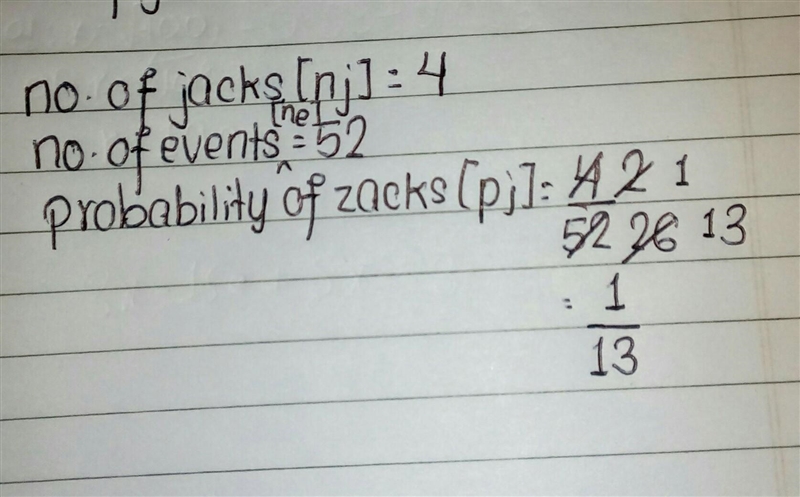 no. of jacks [nj] = 4
no. of events [ne] = 52
probability of zacks [pj] = 4 2 1
52 26 13
= 1
13